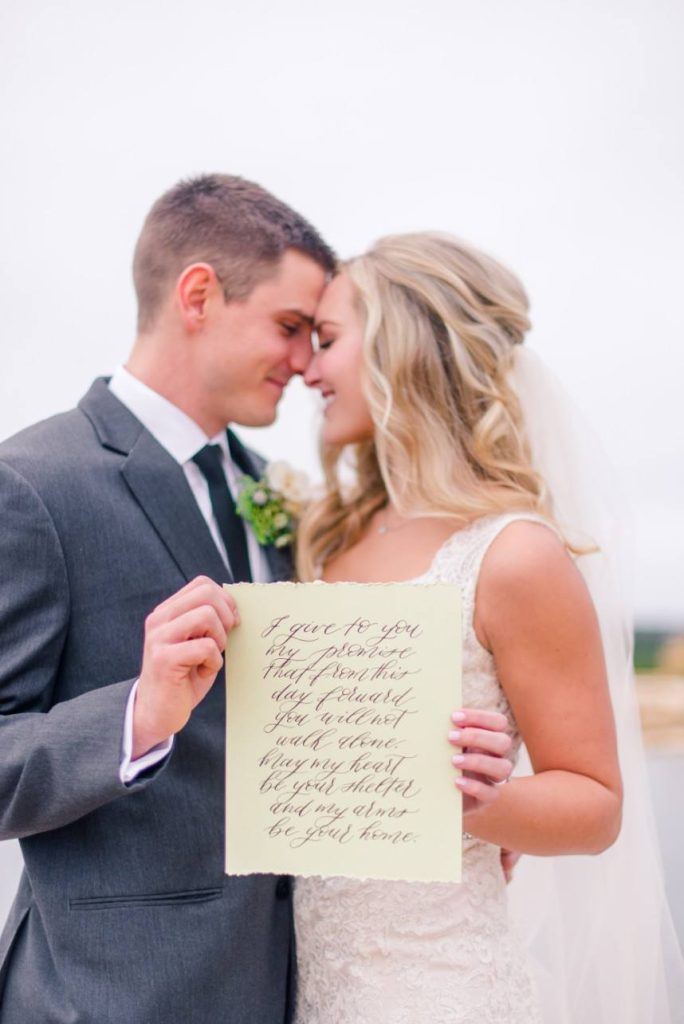 I give to you
my promise
that from this
day forward
you will not
walk alone.
May my heart
be your shelter
and my arms
be your home.